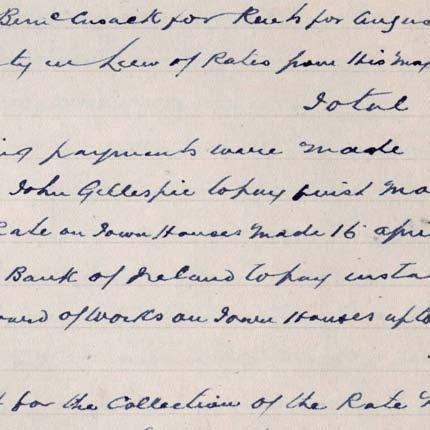 Bernd Cusack for Rent for Augus
ty in Lieu of Rates from His Maj
Total
ing payments were made
John Gillespie to pay
Rate on Town Houses Made 16 apri
Bank of Ireland to pay insta
oard of Works on Town Houses up to
for the Collection of the Rate